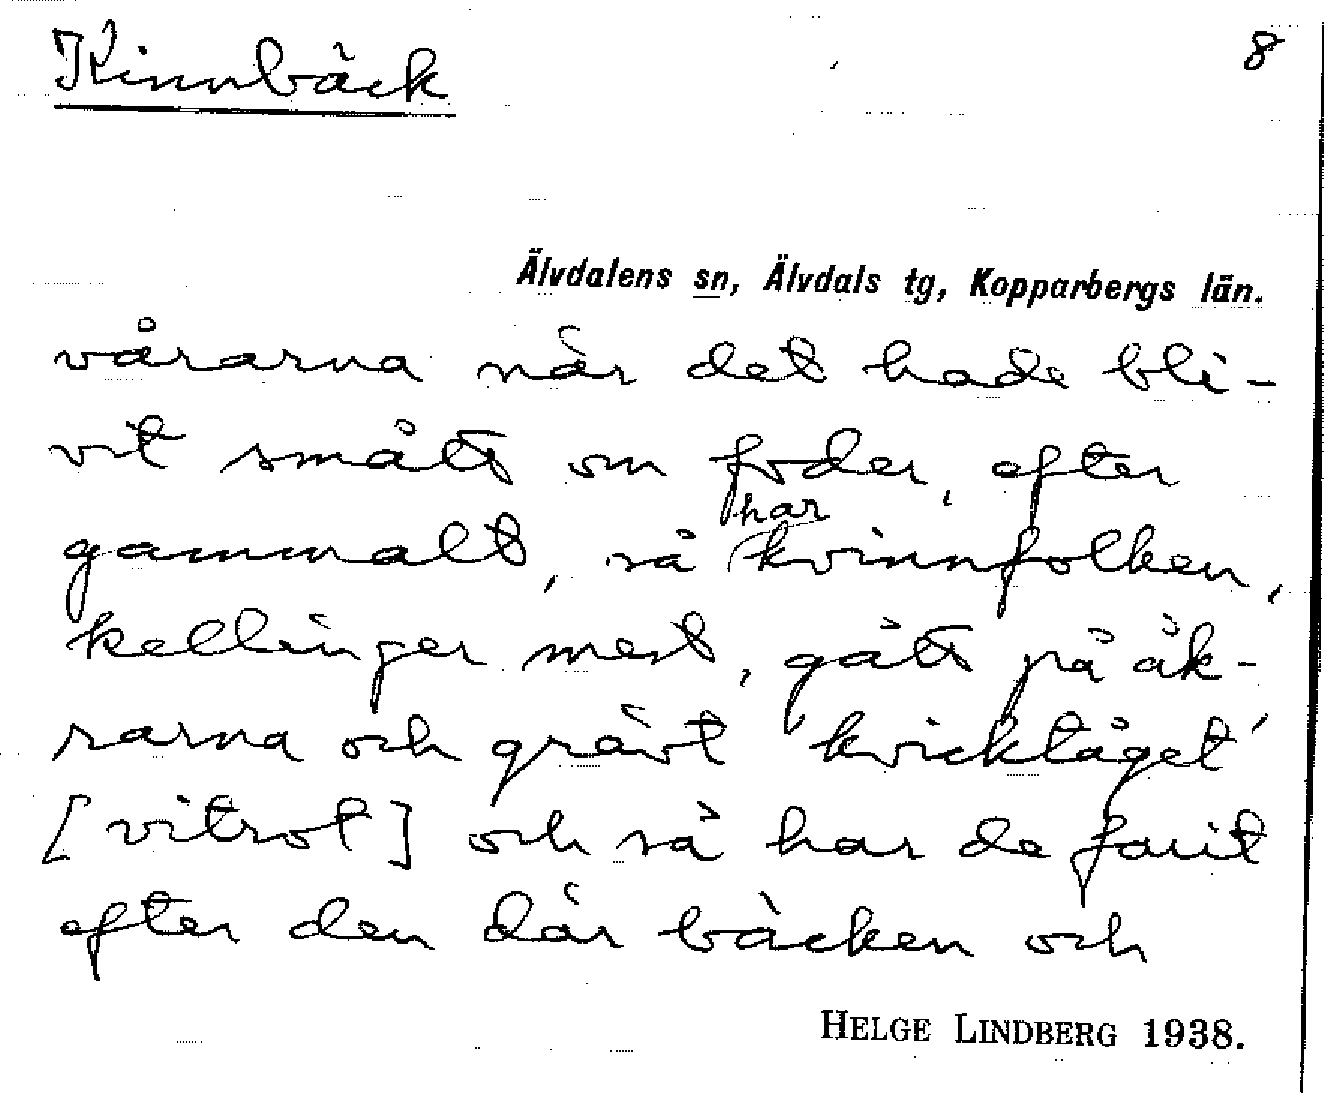 Kinnbäck
8
Älvdalens sn, Älvdals tg, Kopparbergs län.
vårarna när det hade bli-
vit smått om foder, efter
har
gammalt, så kvinnfolken,
kellinger mest, gått på åk-
rarna och grävt 'kvicktåget'
[vitrot] och så har de farit
efter den där bäcken och
HELGE LINDBERG 1938.